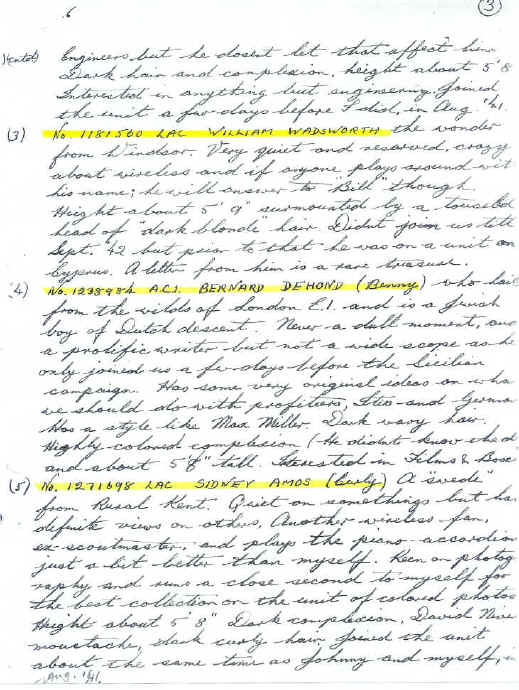 6
(3)
(contd) Engineers but he dosent let that affect him
Dark hair and complexion, height about 5'8
Interested in anything but engineering, joined
the unit a few days before I did, in Aug '41.
(3) No. 1181560 LAC WILLIAM WADSWORTH the wonder
from Windsor. Very quiet and reserved, crazy
about wireless and if anyone plays around wit
his name; he will answer to "Bill" though.
Height about 5' 9" surmounted by a touseled
head of "dark blonde" hair Didnt join us till
Sept. '42 but prior to that he was on a unit on
Cyprus. A letter from him is a rare treasure.
4) No. 1238984 A.C.1. BERNARD DEHOND (Benny) who hails
from the wilds of London E.1. and is a
boy of Dutch descent. Never a dull moment, and
a prolific writer but not a wide scope as he
only joined us a few days before the Sicilian
campaign. Has some very original ideas on wha
we should do with profiteers, and Germa
Has a style like Max Miller. Dark wavy hair.
Highly-colored complexion (He didnt know
and about 5'8" tall. Interested in Films &
(5) No. 1271698 LAC SIDNEY AMOS (Curly) A "swede"
from Rural Kent. Quiet on somethings but ha
definite views on others, Another wireless fan,
ex-scoutmaster, and plays the piano-accordion
just a bit better than myself. Keen on photog
raphy and runs a close second to myself for
the best collection on the unit of colored photos
Height about 5' 8" Dark complexion, David Nive
moustache, dark curly hair joined the unit
about the same time as Johnny and myself, in
Aug. '41.